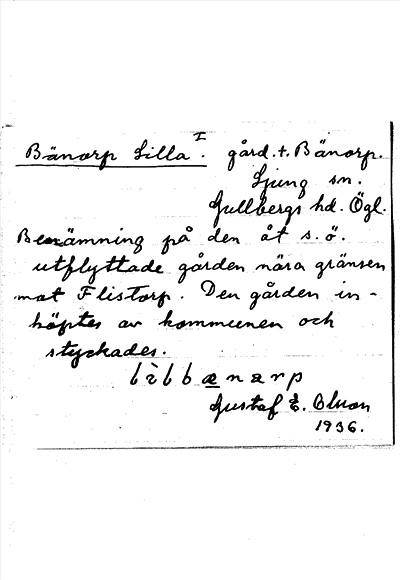 Bänorp Lilla I. gård. t. Bänorp.
Ljung sn.
Gullbergs hd. Ögl.
Benämning på den åt s.ö.
utflyttade gården nära gränsen
mot Flistorp. Den gården in-
köptes av kommunen och
styckades.
Gustaf E. Olson
1936.